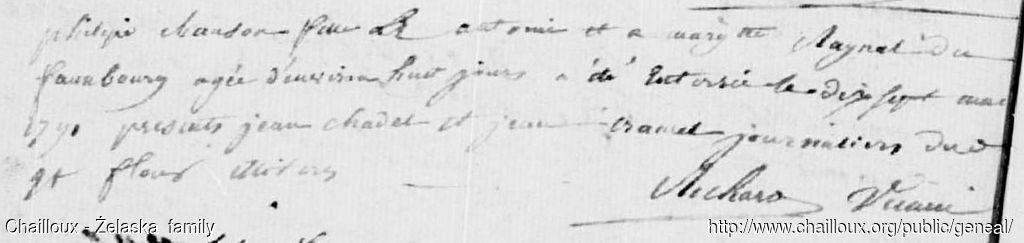 philipe chanson fille de antoine et a margtte Raynal du
faunbourg agée d'environ huit jours a été Enterrée le dix sept mai
1791 présents jean chadel et jean journaliers dud
st flour
Richard Vicaire
Chailloux - Želaska family
http://www.chailloux.org/public/geneal/